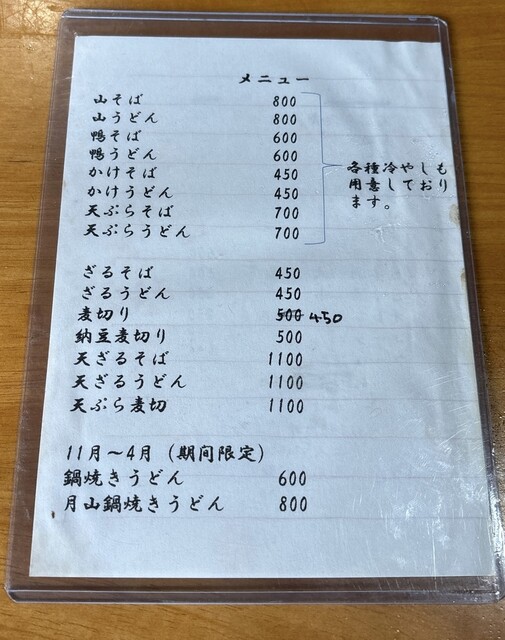 メニュー
山そば 800
山うどん 800
鴨そば 600
鴨うどん 600
かけそば 450
かけうどん 450
天ぷらそば 700
天ぷらうどん 700
各種冷やしも
用意しており
ます。
ざるそば 450
ざるうどん 450
麦切り 500 450
納豆麦切り 500
天ざるそば 1100
天ざるうどん 1100
天ぷら麦切 1100
11月～4月（期間限定）
鍋焼きうどん 600
月山鍋焼きうどん 800